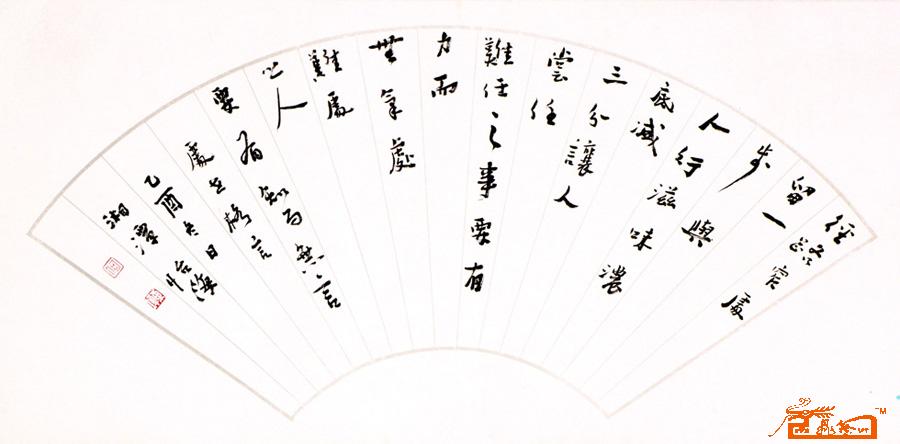 径路窄處
留一
步與
人行滋味濃
底减
三分讓人
嘗任
難任之事要有
力而
無氣處
難處
之人
要有知而無言
處世格言
乙酉冬日
湘潭